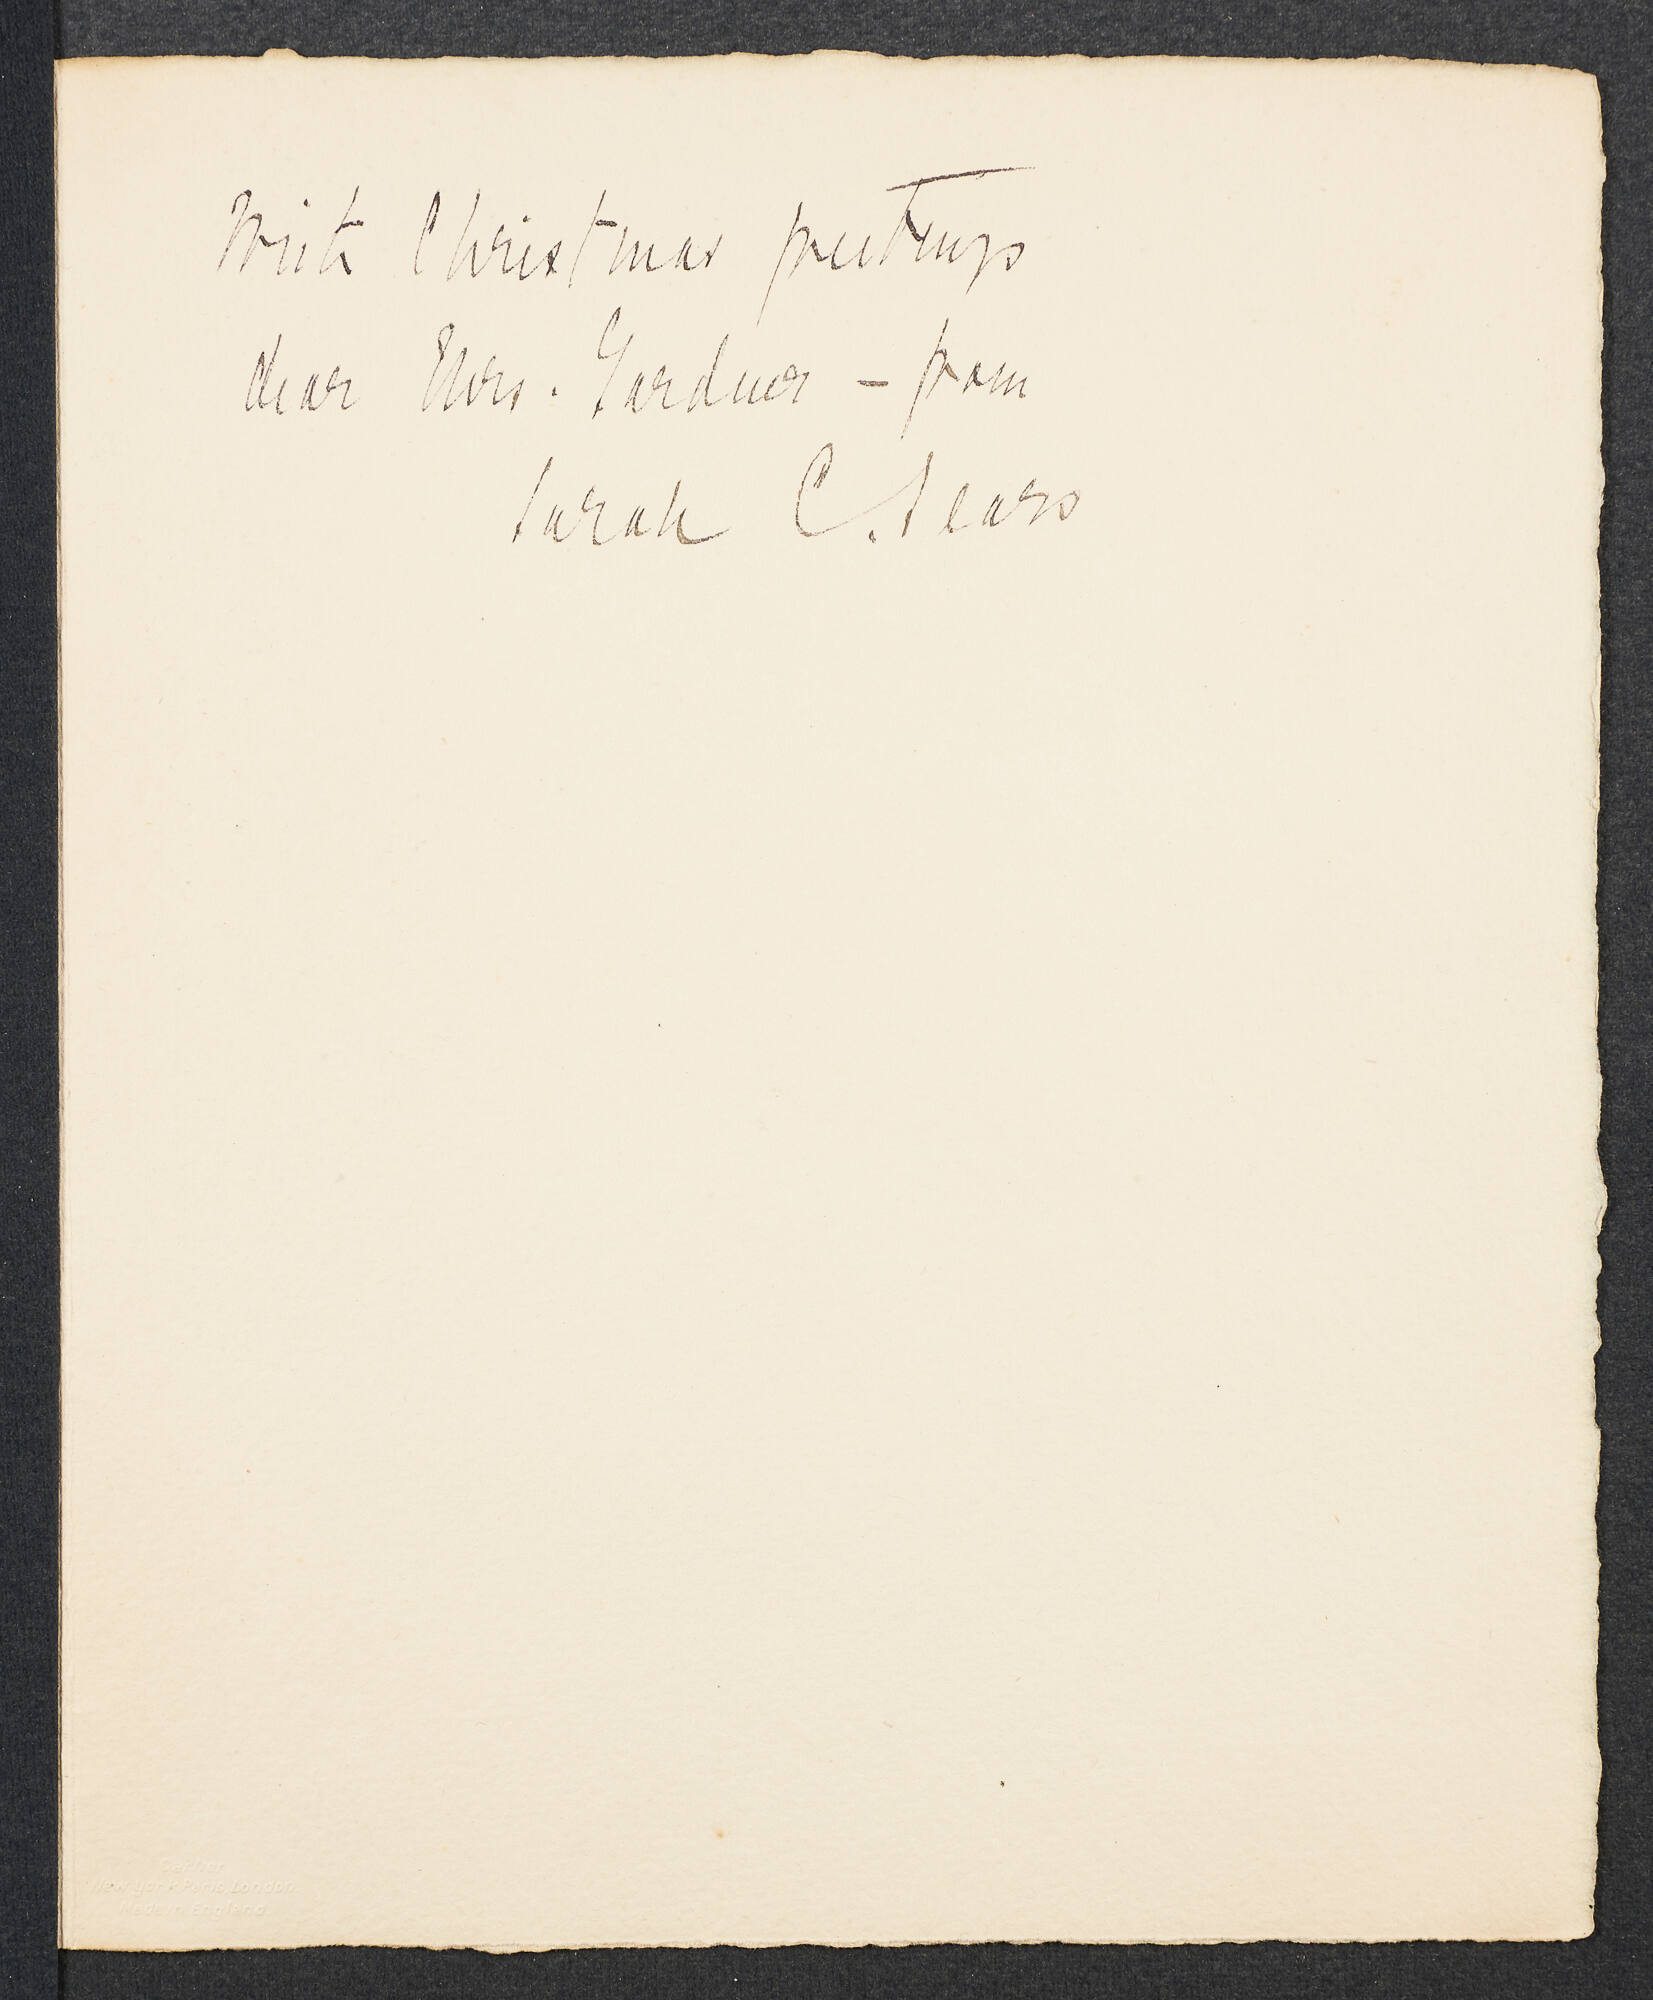 With Christmas greetings
dear Mrs. Gardner – from
Sarah C. Sears
Cartier
New York Paris London
Made in England